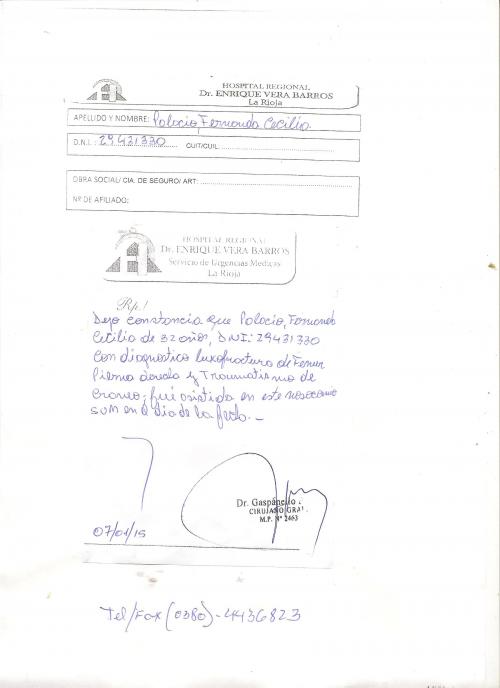 HOSPITAL REGIONAL
Dr. ENRIQUE VERA BARROS
La Rioja
APELLIDO Y NOMBRE: Palacio, Fernanda Cecilia.
D.N.I.: 29431330 CUIT/CUIL:
OBRA SOCIAL/ CIA. DE SEGURO/ ART:
Nº DE AFILIADO:
HOSPITAL REGIONAL
Dr. ENRIQUE VERA BARROS
Servicio de Urgencias Médicas
La Rioja
Rp./
Dejo constancia que Palacio, Fernanda
Cecilia de 32 años, DNI: 29431330
Con diagnostico luxofractura de Femur
Pierna derecha y Traumatismo de
craneo; fué asistida en este nosocomio
SUM en el dia de la fecha. –
Dr. Gaspanello
CIRUJANO GRAL.
M.P. Nº 2463
07/01/15
Tel/Fax (0380)-4436823